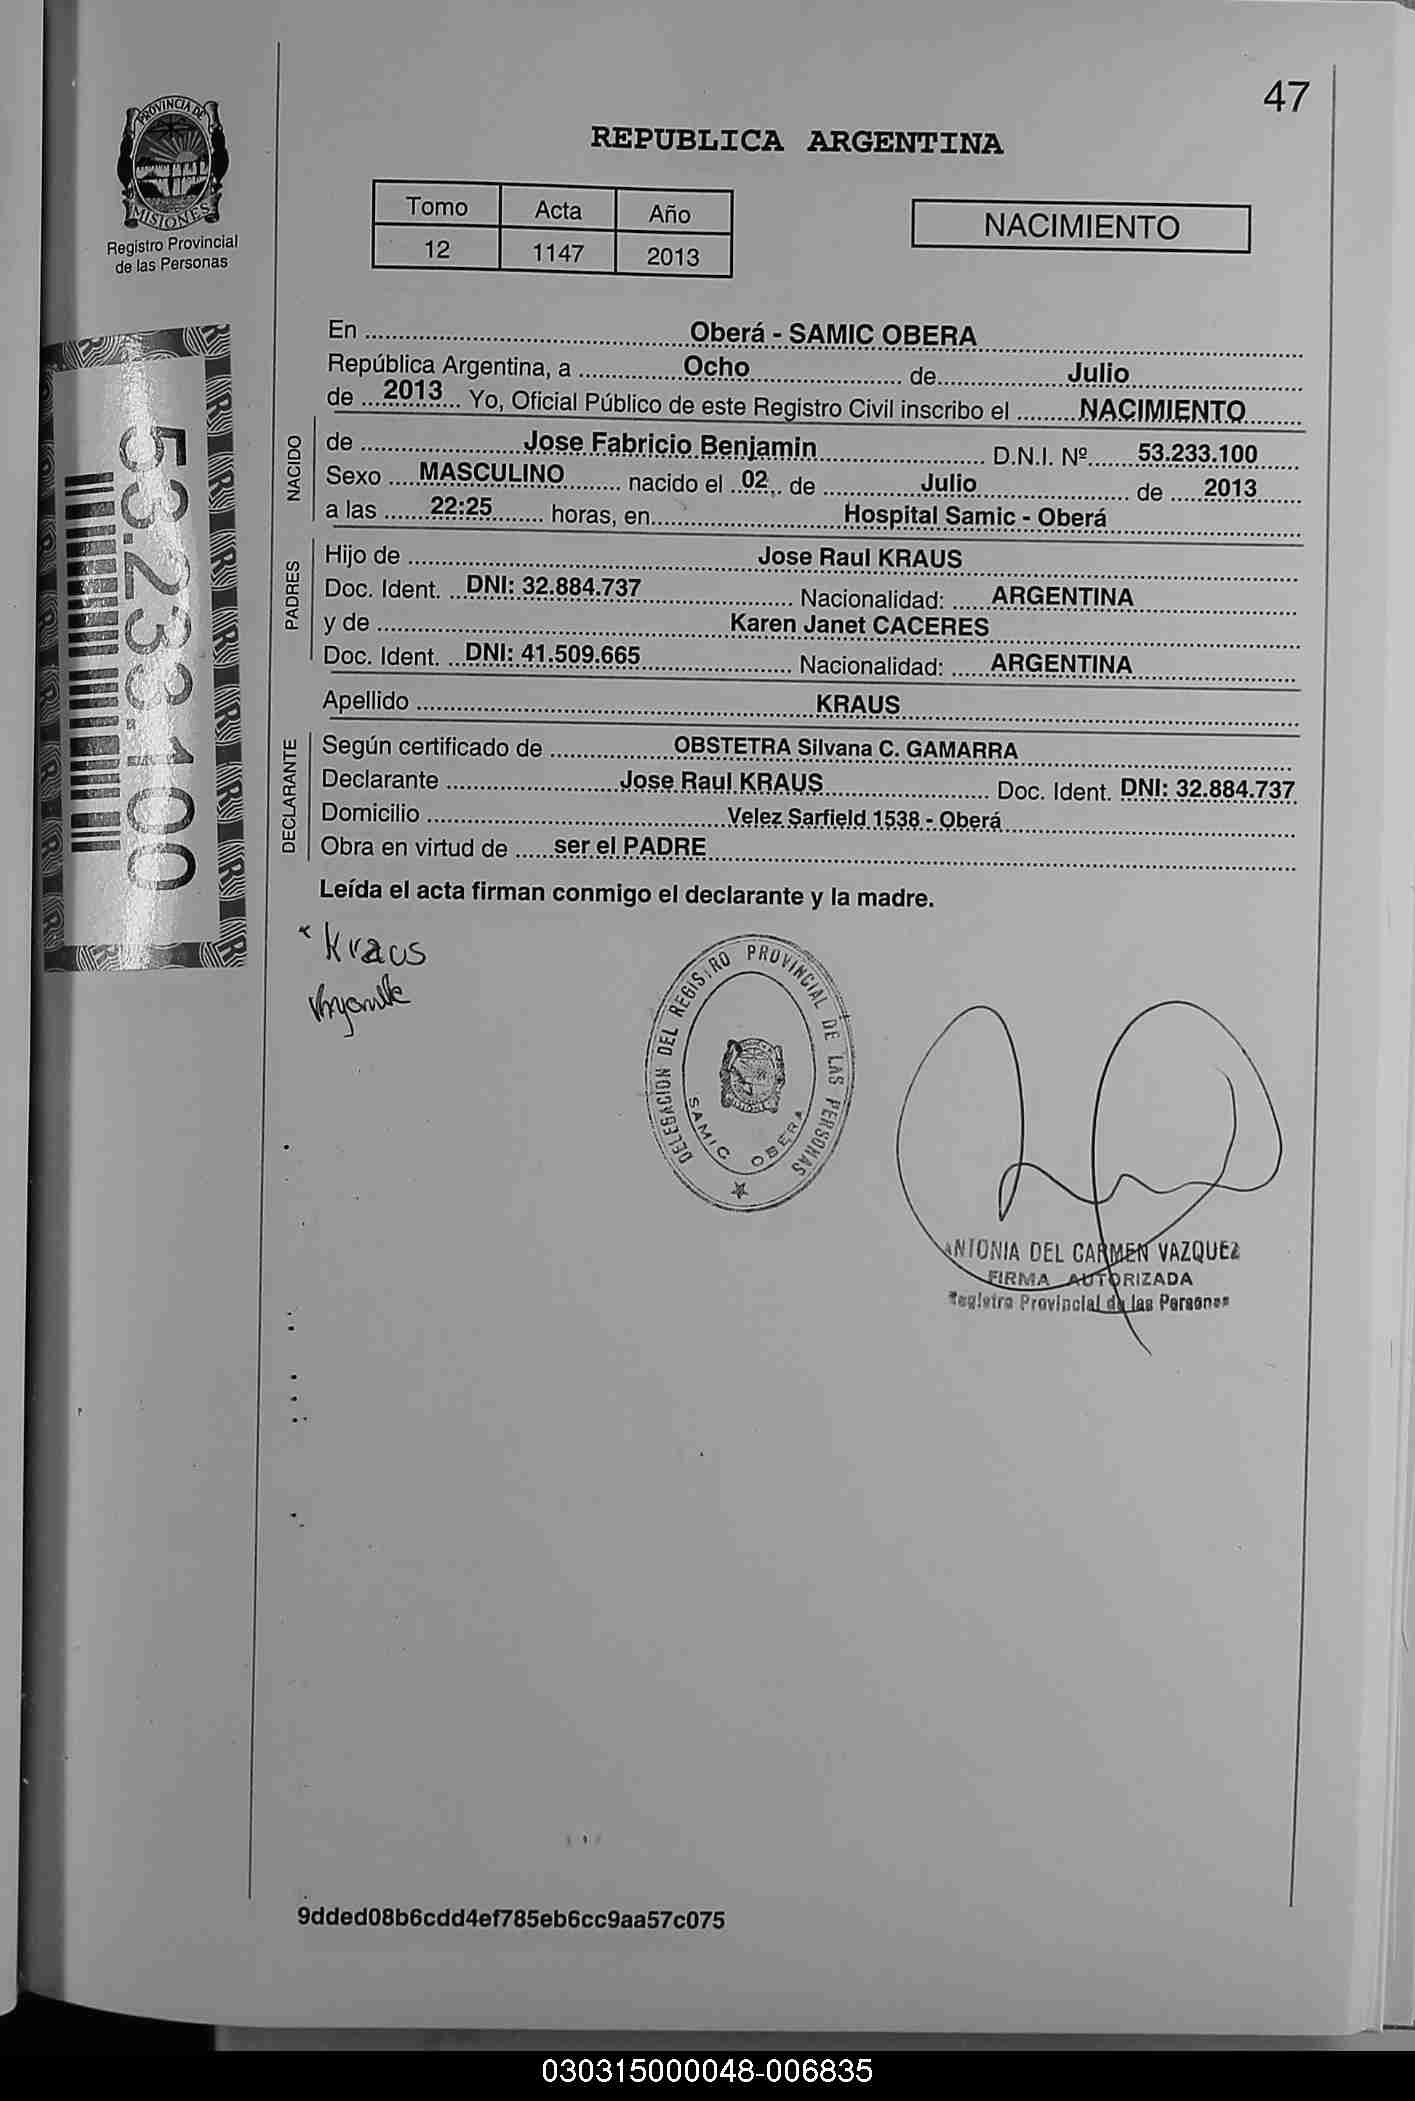 47
PROVINCIA DE
MISIONES
Registro Provincial
de las Personas
REPUBLICA ARGENTINA
Tomo Acta Año
12 1147 2013
NACIMIENTO
53.233.100
En Oberá - SAMIC OBERA
República Argentina, a Ocho de Julio
de 2013 Yo, Oficial Público de este Registro Civil inscribo el NACIMIENTO
NACIDO
de Jose Fabricio Benjamin D.N.I. Nº 53.233.100
Sexo MASCULINO nacido el 02 de Julio de 2013
a las 22:25 horas, en Hospital Samic - Oberá
PADRES
Hijo de Jose Raul KRAUS
Doc. Ident. DNI: 32.884.737 Nacionalidad: ARGENTINA
y de Karen Janet CACERES
Doc. Ident. DNI: 41.509.665 Nacionalidad: ARGENTINA
Apellido KRAUS
DECLARANTE
Según certificado de OBSTETRA Silvana C. GAMARRA
Declarante Jose Raul KRAUS Doc. Ident. DNI: 32.884.737
Domicilio Velez Sarfield 1538 - Oberá
Obra en virtud de ser el PADRE
Leída el acta firman conmigo el declarante y la madre.
Kraus
DELEGACION DEL REGISTRO PROVINCIAL DE LAS PERSONAS
SAMIC OBERA
ANTONIA DEL CARMEN VAZQUEZ
FIRMA AUTORIZADA
Registro Provincial de las Personas
9dded08b6cdd4ef785eb6cc9aa57c075
030315000048-006835